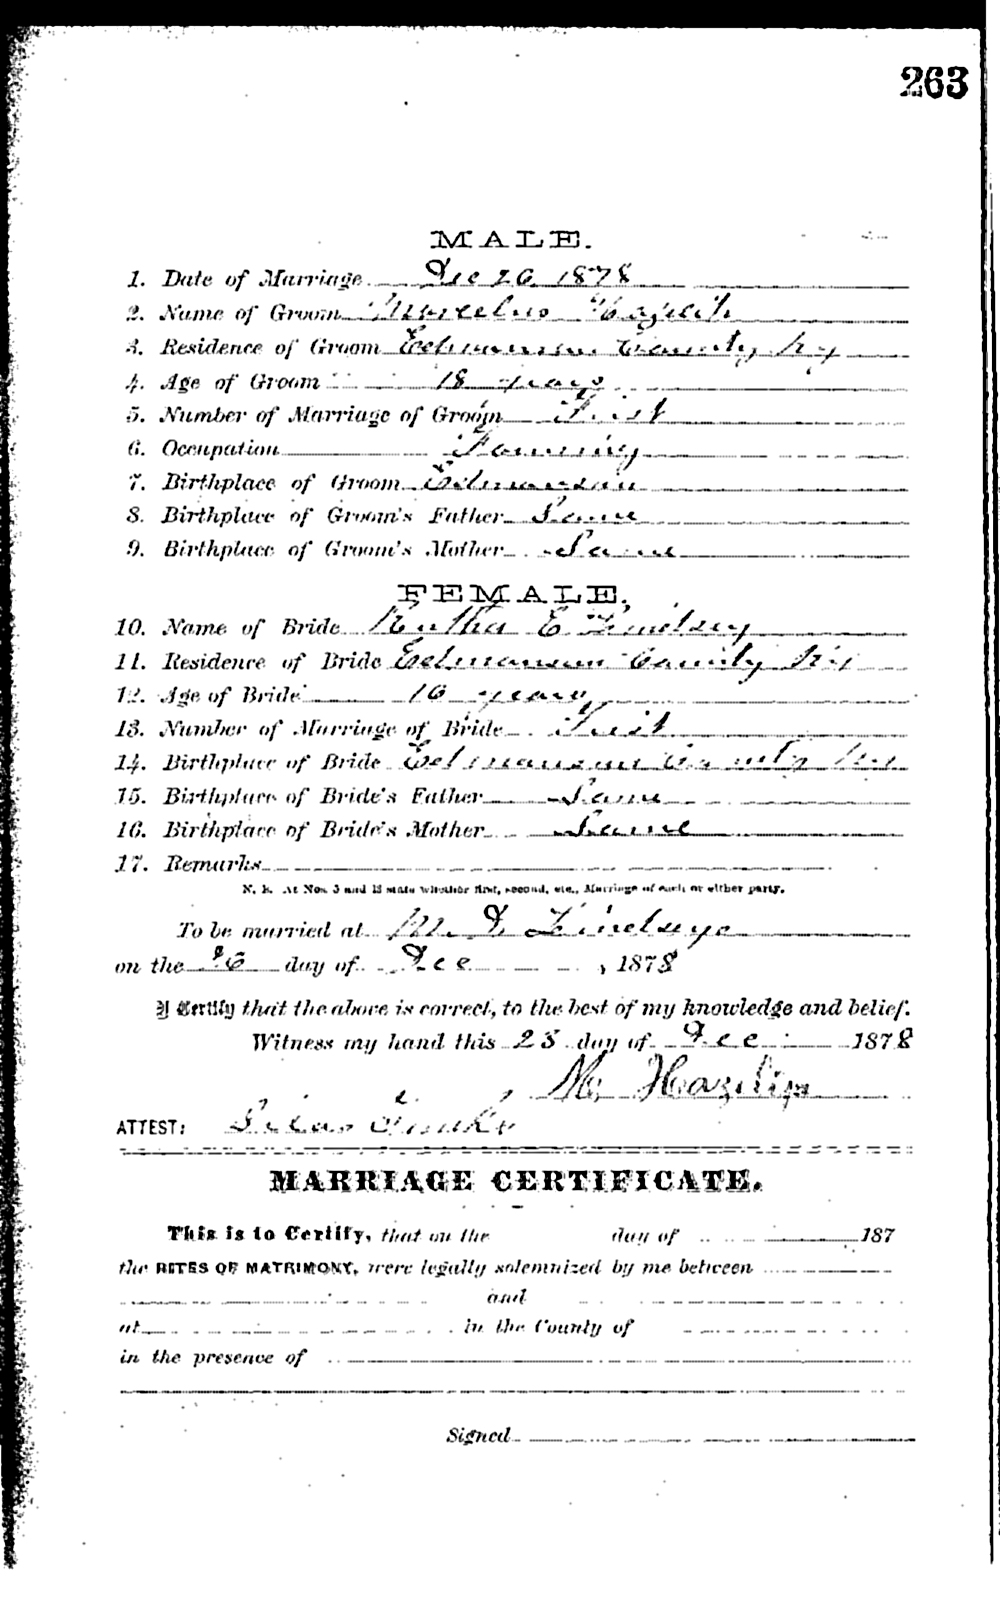 263
MALE.
1. Date of Marriage Dec 26 1878
2. Name of Groom Marcelus Hazelip
3. Residence of Groom Edmonson County Ky
4. Age of Groom 18 years
5. Number of Marriage of Groom First
6. Occupation Farming
7. Birthplace of Groom Edmonson
8. Birthplace of Groom's Father Same
9. Birthplace of Groom's Mother Same
FEMALE.
10. Name of Bride E Lindsey
11. Residence of Bride Edmonson County Ky
12. Age of Bride 16 years
13. Number of Marriage of Bride First
14. Birthplace of Bride Edmonson County Ky
15. Birthplace of Bride's Father Same
16. Birthplace of Bride's Mother Same
17. Remarks
N. B. At Nos. 5 and 13 state whether first, second, etc., Marriage of each or either party.
To be married at M. D Lindseys
on the 26 day of Dec , 1878
I Certify that the above is correct, to the best of my knowledge and belief.
Witness my hand this 25 day of Dec 1878
M. Hazelip
ATTEST: Silas
MARRIAGE CERTIFICATE.
This is to Certify, that on the day of 187
the RITES OF MATRIMONY, were legally solemnized by me between
and
at in the County of
in the presence of
Signed